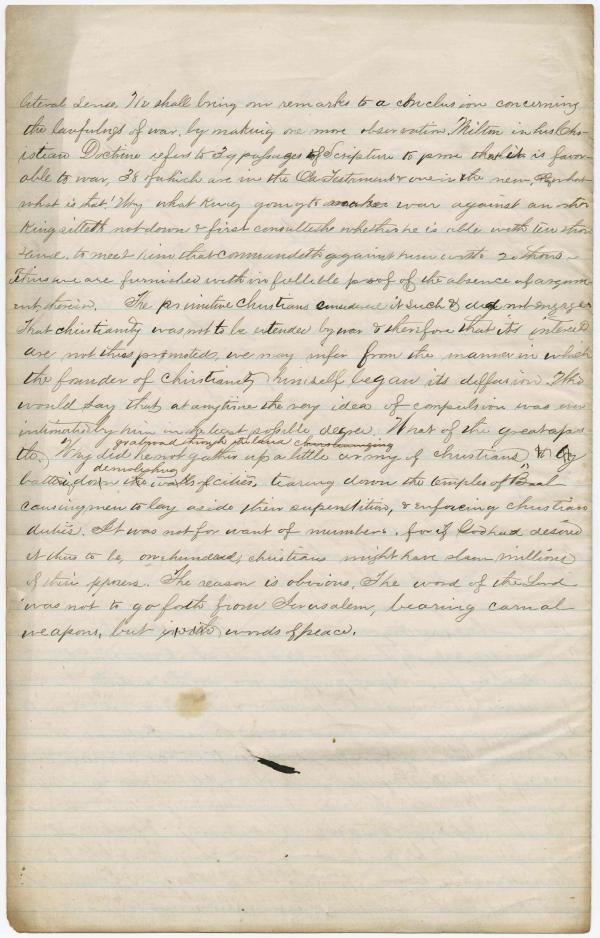 literal sense. We shall bring our remarks to a conclusion concerning
the lawfulness of war, by making one more observation, Milton in his Chr-
istian Doctrine refers to 39 passages of Scripture to prove that it is favor-
able to war, 38 of which are in the Old Testament & one in the new,
what is that. Why what King going to make war against an other
King sitteth not down & first consulteth whether he is able with ten thou-
sand, to meet him that commandeth against him with 20 thous-
Thus we are furnished with infallible proof of the absence of argum
ent therein. The primitive christians considered it such & did not engage
That christianity was not to be extended by war & therefore that its interests
are not thus promoted, we may infer from the manner in which
the founder of christianity himself began its deffusion. Who
would say that at anytime the very idea of compulsion was ever
intimated by him in the least possible, degree. What of the great apos
grad road through the land christianizing
tle, Why did he not gather up a little army of christians & by
demolishing
batter down the walls of cities, tearing down the temples of Baal
causing men to lay aside their superstition, & enforcing christian
duties. It was not for want of numbers, for if God had desired
it thus to be, one hundred christians might have slain millions
of their The reason is obvious, The word of the Lord
was not to go forth from Jerusalem, bearing carnal
weapons, but with words of peace.